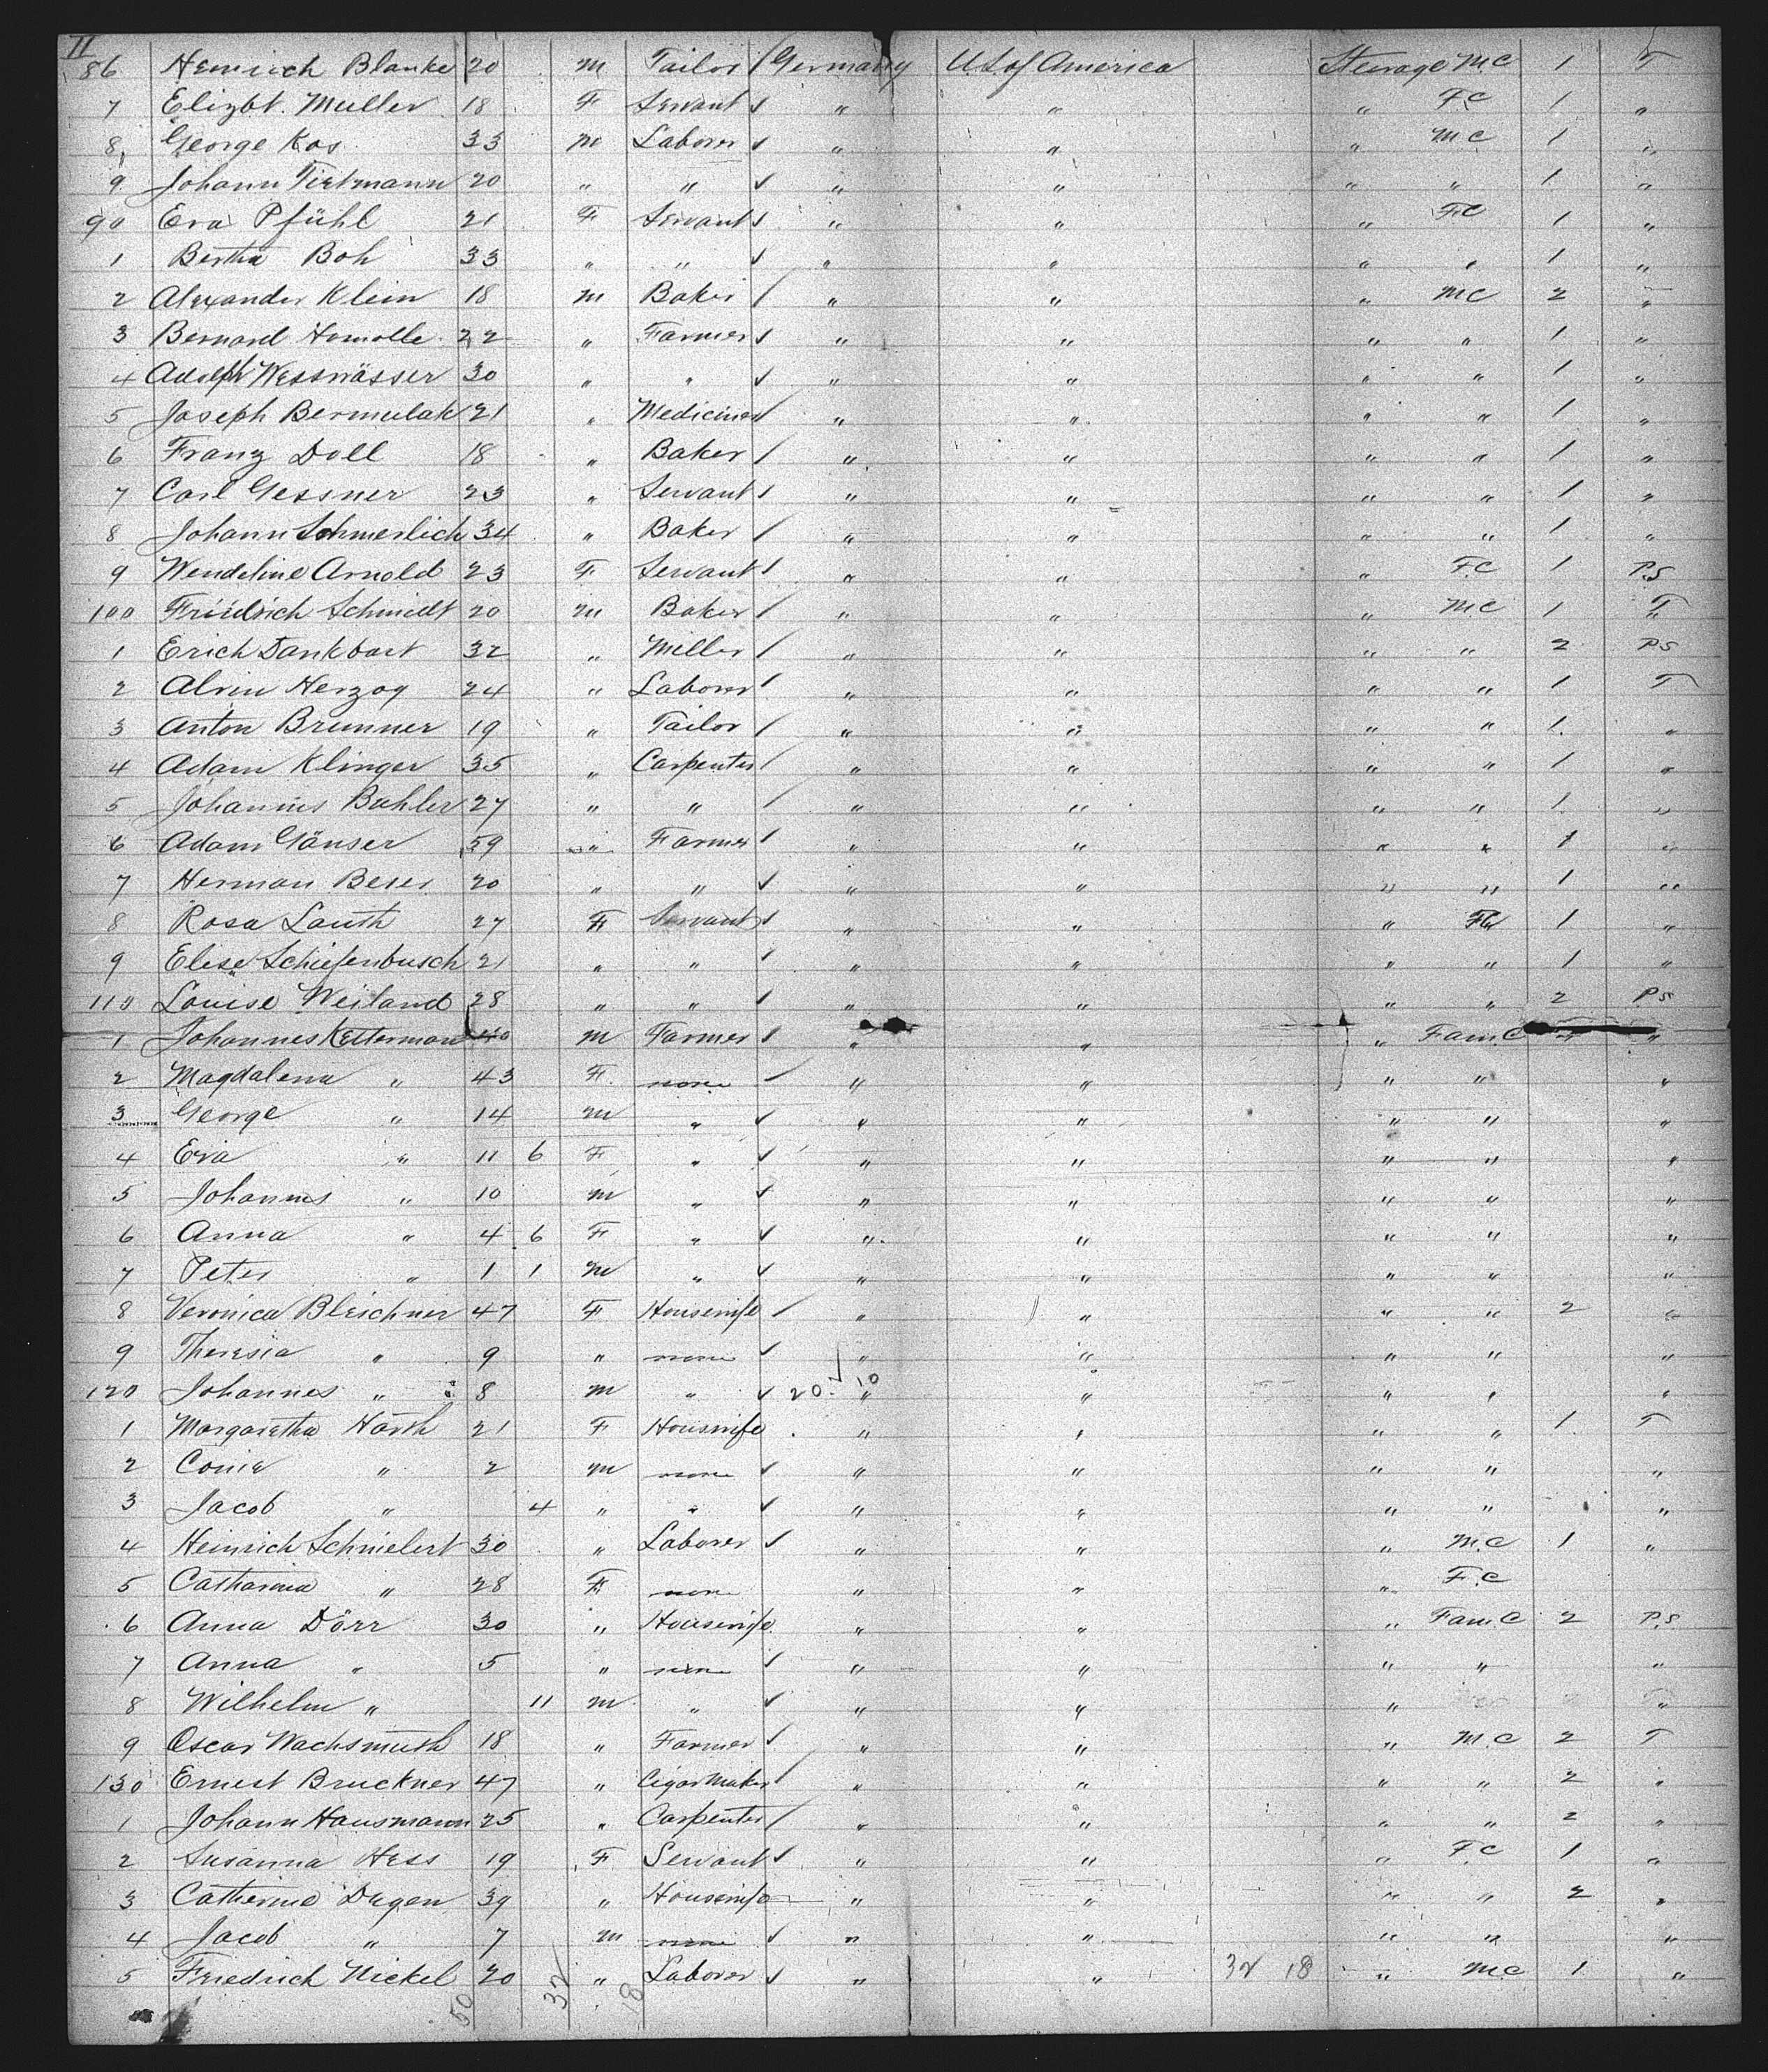 II
86 Heinrich Blanke 20 M Tailor / Germany U.S. of America Steerage M.C 1 T
7 Elizbt. Muller 18 F Servant ✓ " " " F.C 1 "
8 George Kos 33 M Laborer ✓ " " " M.C 1 "
9 Johann Tietmann 20 " " ✓ " " " " 1 "
90 Eva Pfühl 21 F Servant ✓ " " " F.C 1 "
1 Bertha Boh 33 " " ✓ " " " " 1 "
2 Alexander Klein 18 M Baker / " " " M C 2 "
3 Bernard Homolle 22 " Farmer ✓ " " " " 1 "
4 Adolph Wesswässer 30 " " ✓ " " " " 1 "
5 Joseph Bermulak 21 " Mediciner / " " " " 1 "
6 Franz Doll 18 " Baker / " " " " 1 "
7 Carl Gessner 23 " Servant ✓ " " " " 1 "
8 Johann Schmerlich 34 " Baker / " " " " 1 "
9 Wendeline Arnold 23 F Servant / " " " F.C 1 P.S
100 Friedrich Schmidt 20 M Baker / " " " M.C 1 T
1 Erich Dankbart 32 " Miller / " " " " 2 P S
2 Alvin Herzog 24 " Laborer / " " " " 1 T
3 Anton Brunner 19 " Tailor / " " " " 1 "
4 Adam Klinger 35 " Carpenter / " " " " 1 "
5 Johannes Buhler 27 " " / " " " " 1 "
6 Adam Gänser 59 " Farmer / " " " " 1 "
7 Herman Beser 20 " " ✓ " " " " 1 "
8 Rosa Lauth 27 F Servant ✓ " " " F.C 1 "
9 Elise Schiefenbusch 21 " " / " " " " 1 "
110 Louise Weiland 28 " " / " " " " 2 P S
1 Johannes Ketterman 40 M Farmer / " " " Fam.C "
2 Magdalena " 43 F none ✓ " " " " "
3 George " 14 M " ✓ " " " " "
4 Eva " 11 6 F " ✓ " " " " "
5 Johannes " 10 M " ✓ " " " " "
6 Anna " 4 6 F " ✓ " " " " "
7 Peter " 1 1 M " ✓ " " " " "
8 Veronica Bleichner 47 F Housewife / " " " " 2 "
9 Theresia " 9 " none ✓ " " " " "
120 Johannes " 8 M " ✓ 20 ✓ 10 " " " " "
1 Margaretha Harth 21 F Housewife " " " " 1 T
2 Conie " 2 M none ✓ " " " " "
3 Jacob " 4 " " ✓ " " " " "
4 Heinrich Schnielert 30 " Laborer ✓ " " " M.C 1 "
5 Catharina " 28 F none " " " F.C
6 Anna Dörr 30 " Housewife " " " Fam.C 2 P.S
7 Anna " 5 " none ✓ " " " " "
8 Wilhelm " 11 M " ✓ " " " "
9 Oscar Wachsmuth 18 " Farmer ✓ " " " M.C 2 T
130 Ernest Bruckner 47 " Cigar Maker / " " " " 2 "
1 Johann Hausmann 25 " Carpenter / " " " " 2 "
2 Susanna Hess 19 F Servant ✓ " " " F.C 1 "
3 Catherine Degen 39 " Housewife " " " " 2 "
4 Jacob " 7 M none ✓ " " " " "
5 Friedrich Nickel 20 " Laborer ✓ " " 32 18 " M.C 1 "
50 32 18